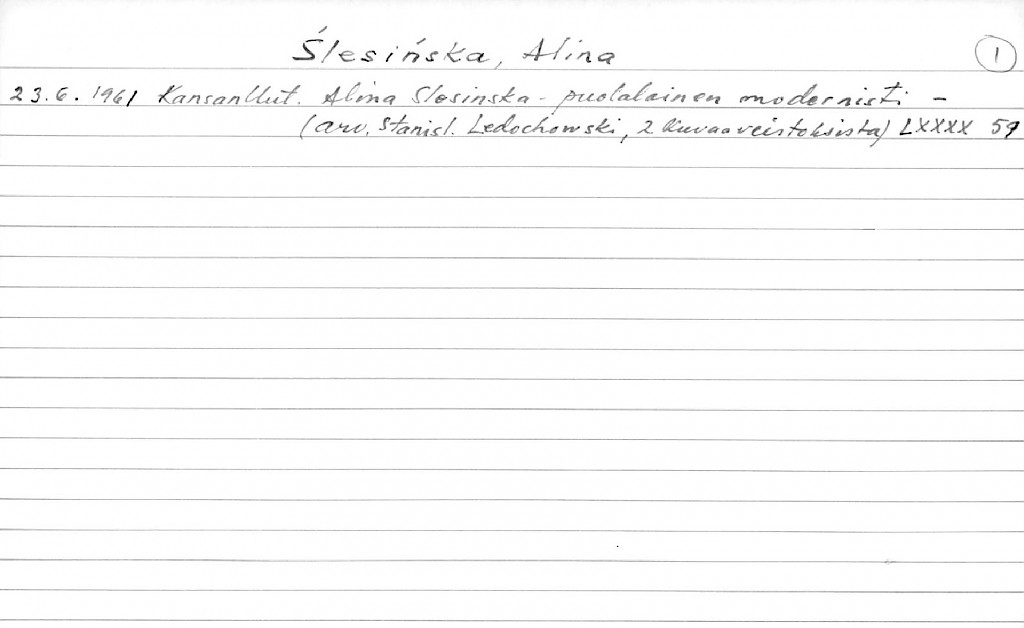 Ślesińska, Alina 1
23.6.1961 Kansan Uut. Alina Slesinska - puolalainen modernisti -
(arv. Stanisl. Ledochowski, 2 kuvaa veistoksista) LXXXX 59